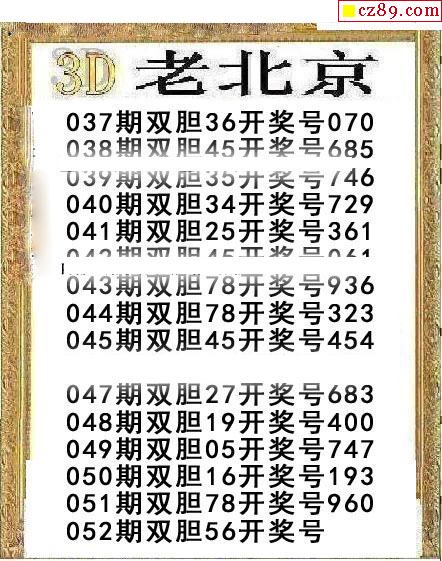 cz89.com
3D 老北京
037期双胆36开奖号070
038期双胆45开奖号685
039期双胆35开奖号746
040期双胆34开奖号729
041期双胆25开奖号361
043期双胆78开奖号936
044期双胆78开奖号323
045期双胆45开奖号454
047期双胆27开奖号683
048期双胆19开奖号400
049期双胆05开奖号747
050期双胆16开奖号193
051期双胆78开奖号960
052期双胆56开奖号